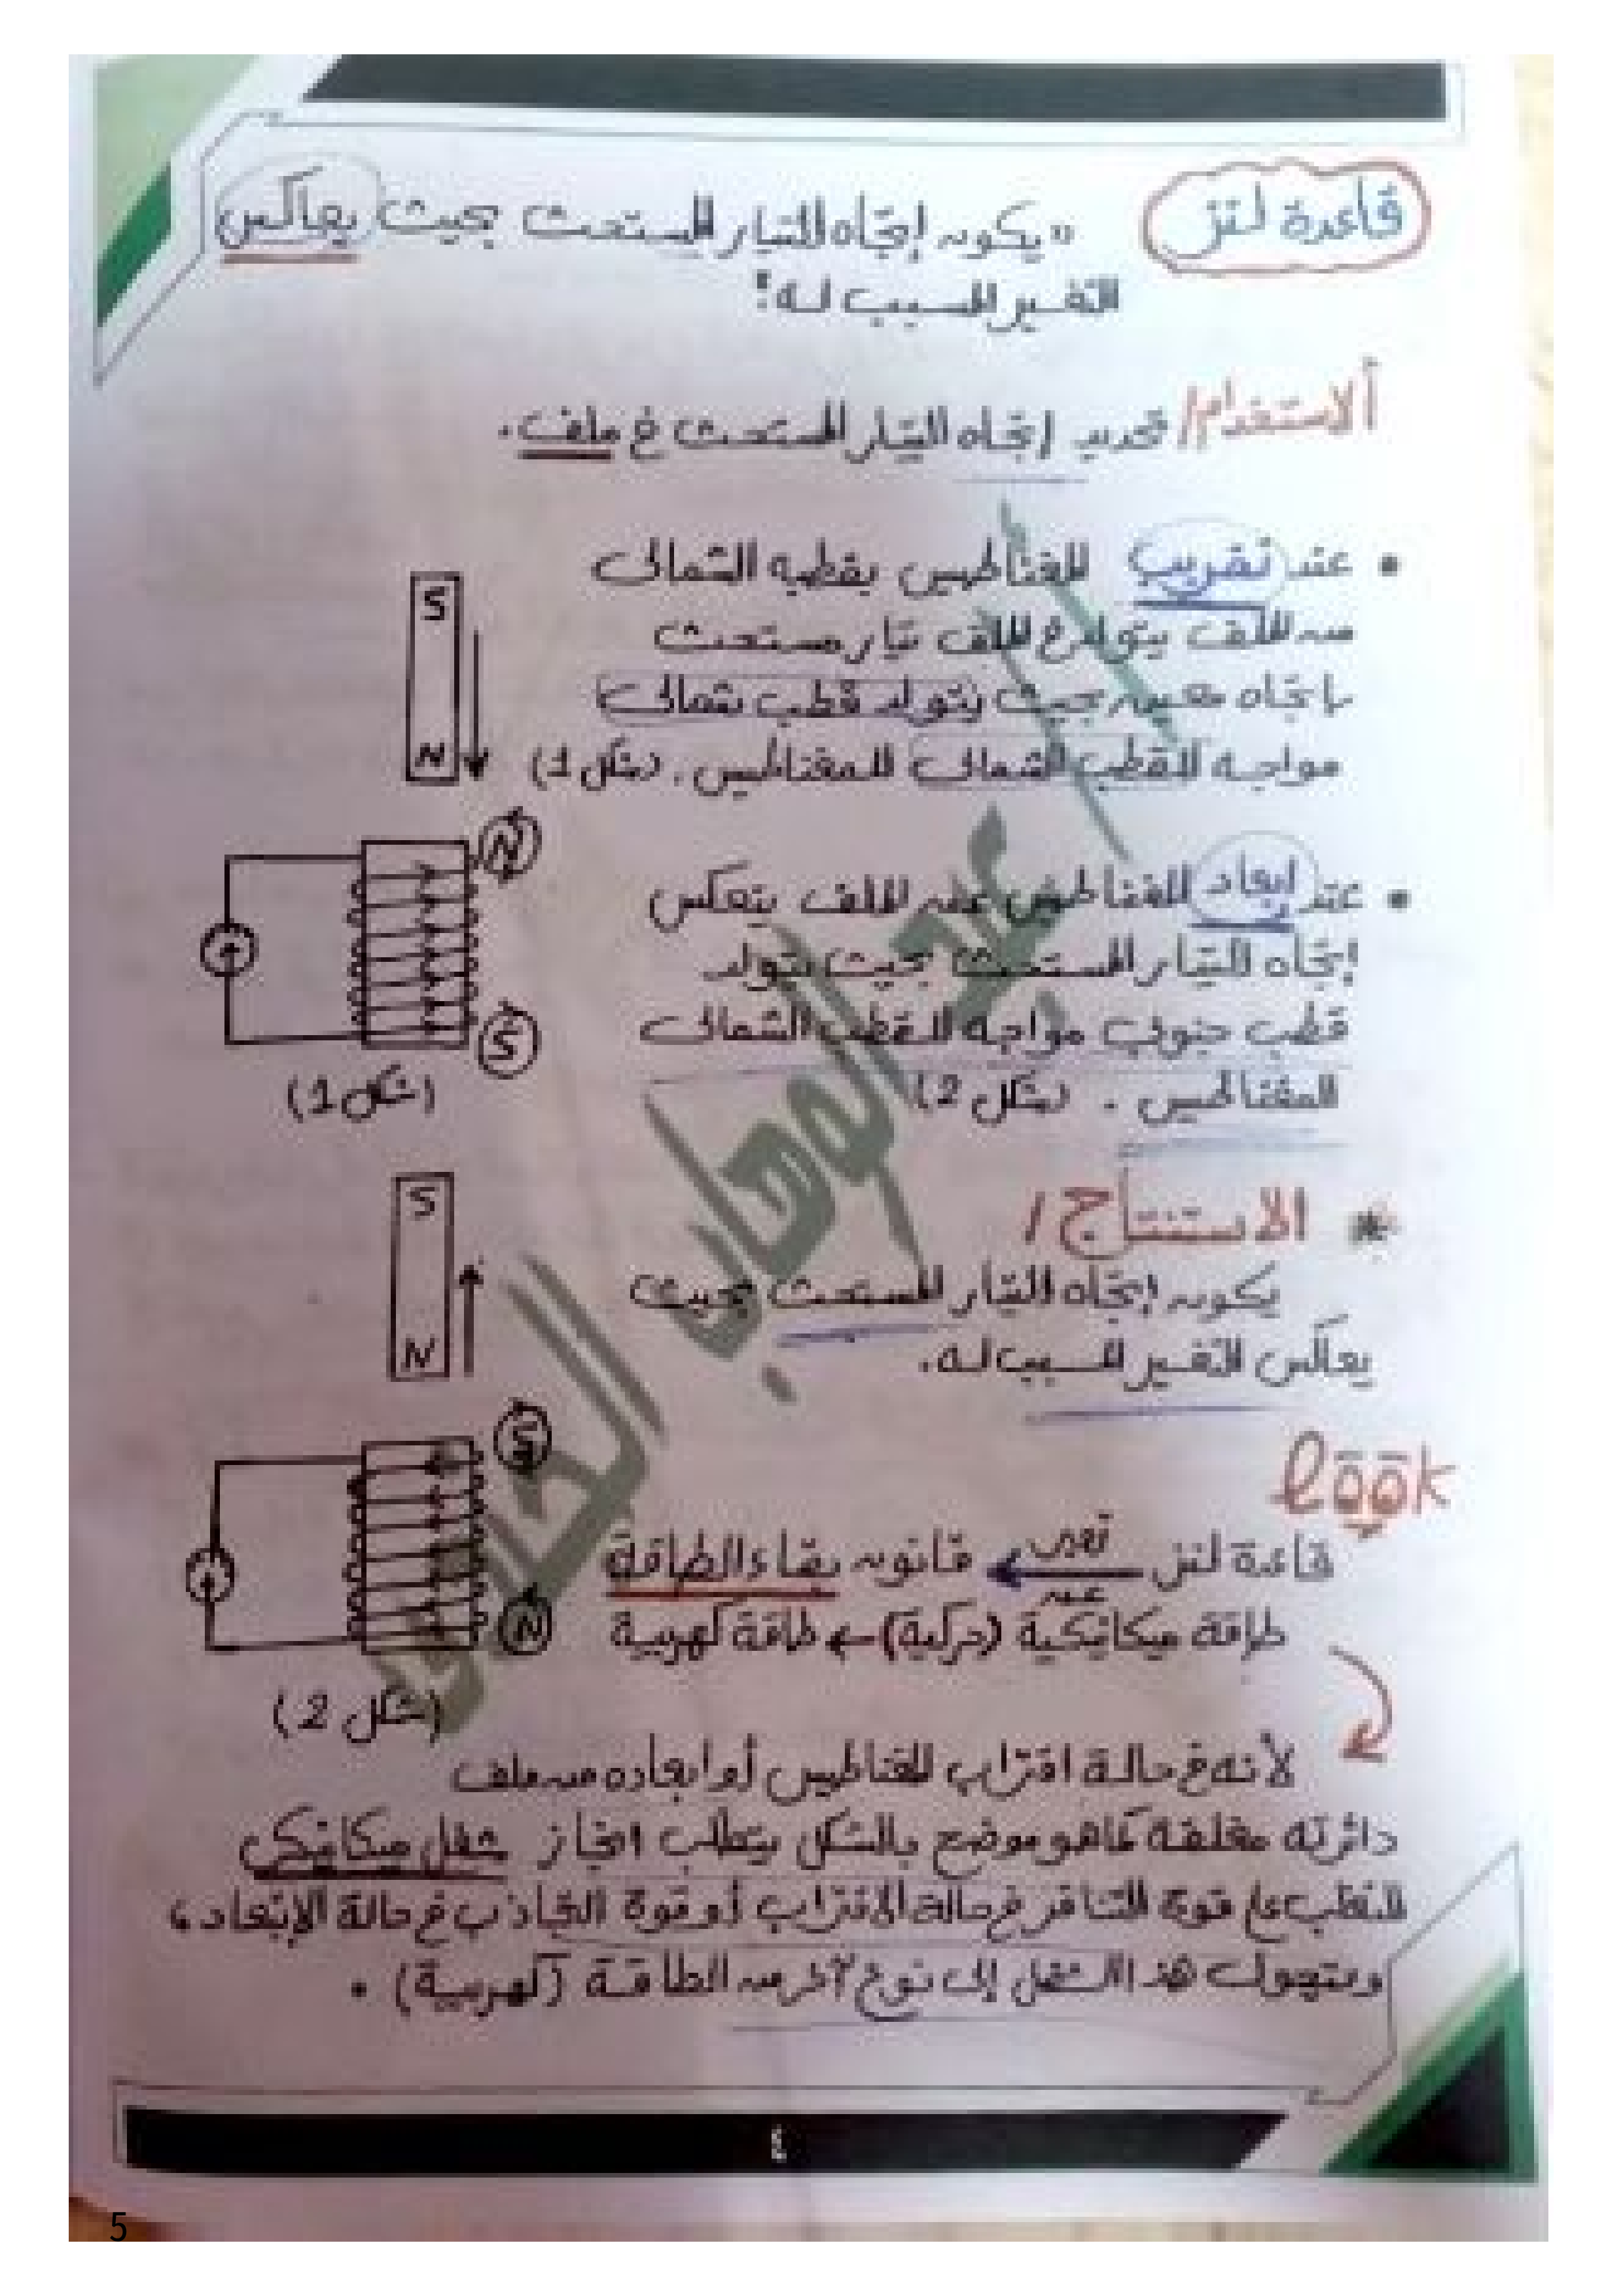 قاعدة لنز
" يكون إتجاه التيار المستحث بحيث يعاكس
التغير المسبب له "
ألاستخدام/ تحديد إتجاه التيار المستحث في ملف .
• عند تقريب المغناطيس بقطبه الشمالى
من الملف يتولد في الملف تيار مستحث
بإتجاه معين بحيث يتولد قطب شمالى
مواجه للقطب الشمالى للمغناطيس . (شكل 1)
S
N
N
S
(شكل 1)
• عند إبعاد المغناطيس عن الملف ينعكس
إتجاه التيار المستحث بحيث يتولد
قطب جنوبي مواجه للقطب الشمالى
للمغناطيس . (شكل 2)
* الاستنتاج /
يكون إتجاه التيار المستحث بحيث
يعاكس التغير المسبب له .
S
N
S
N
(شكل 2)
look
قاعدة لنز تعبر عن قانون بقاء الطاقة
طاقة ميكانيكية (حركية) ← طاقة كهربية
لأنه في حالة اقتراب المغناطيس أو ابعاده من ملف
دائرته مغلقة كما هو موضح بالشكل يتطلب انجاز شغل ميكانيكى
للتغلب على قوة التنافر في حالة الاقتراب أو قوة التجاذب في حالة الإبتعاد ،
ويتحول هذا الشغل إلى نوع آخر من الطاقة (كهربية) .
عبد الوهاب
٤
5